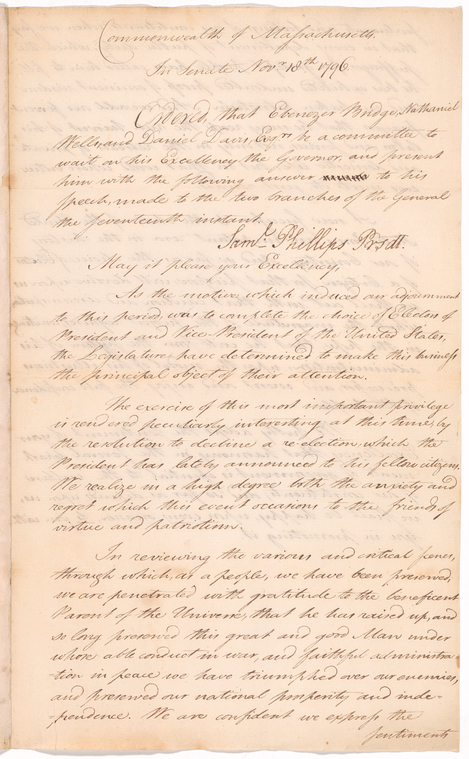 Commonwealth of Massachusetts.
In Senate Novr. 18th 1796.
Ordered, that Ebenezer Bridge, Nathaniel
Wells and Daniel Davis, Esqrs be a committee to
wait on his Excellency the Governor, and present
him with the following answer to his
speech, made to the two branches of the General
the seventeenth instant.
Saml. Phillips Presdt.
May it please your Excellency,
As the motive which induced our adjournment
to this period was to complete the choice of Electors of
President and Vice-President of the United States,
the Legislature have determined to make this business
the principal object of their attention.
The exercise of this most important privilege
is rendered peculiarly interesting at this time, by
the resolution to decline a re-election, which the
President has lately announced to his fellow citizens.
We realize in a high degree both the anxiety and
regret which this event occasions to the friends of
virtue and patriotism.
In reviewing the various and critical scenes,
through which, as a people, we have been preserved,
we are penetrated with gratitude to the beneficent
Parent of the Universe, that he has raised up, and
so long preserved this great and good Man under
whose able conduct in war, and faithful administra-
-tion in peace we have triumphed over our enemies,
and preserved our national prosperity and inde-
-pendence. We are confident we express the
sentiments